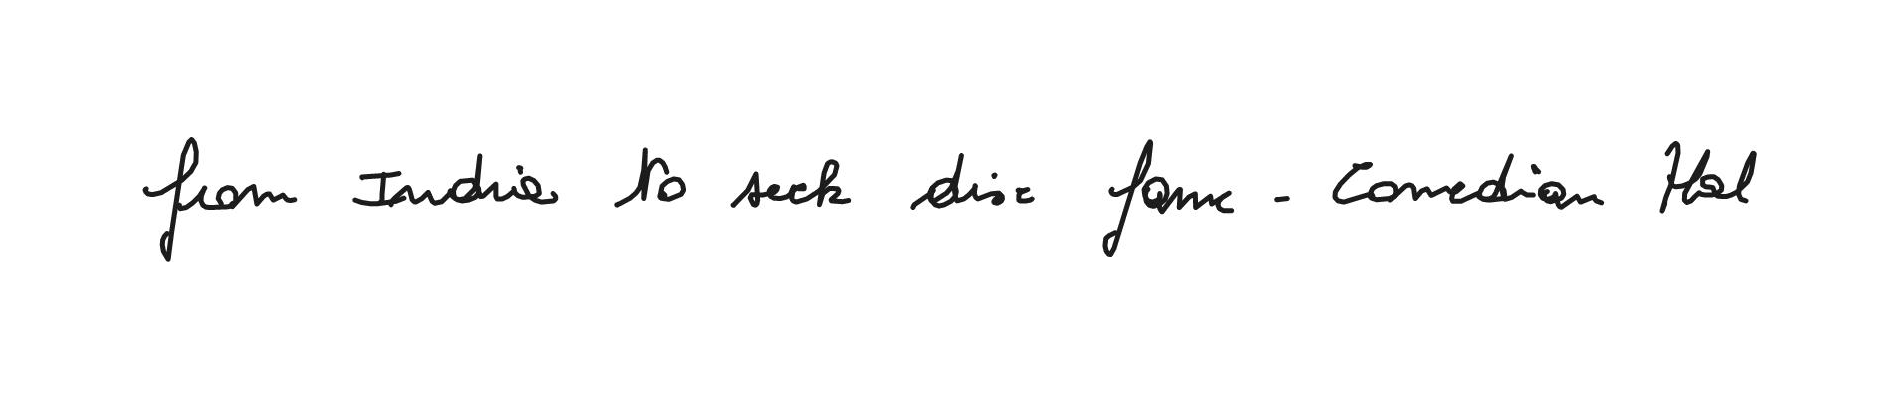 from India to seek disc fame - Comedian Hal